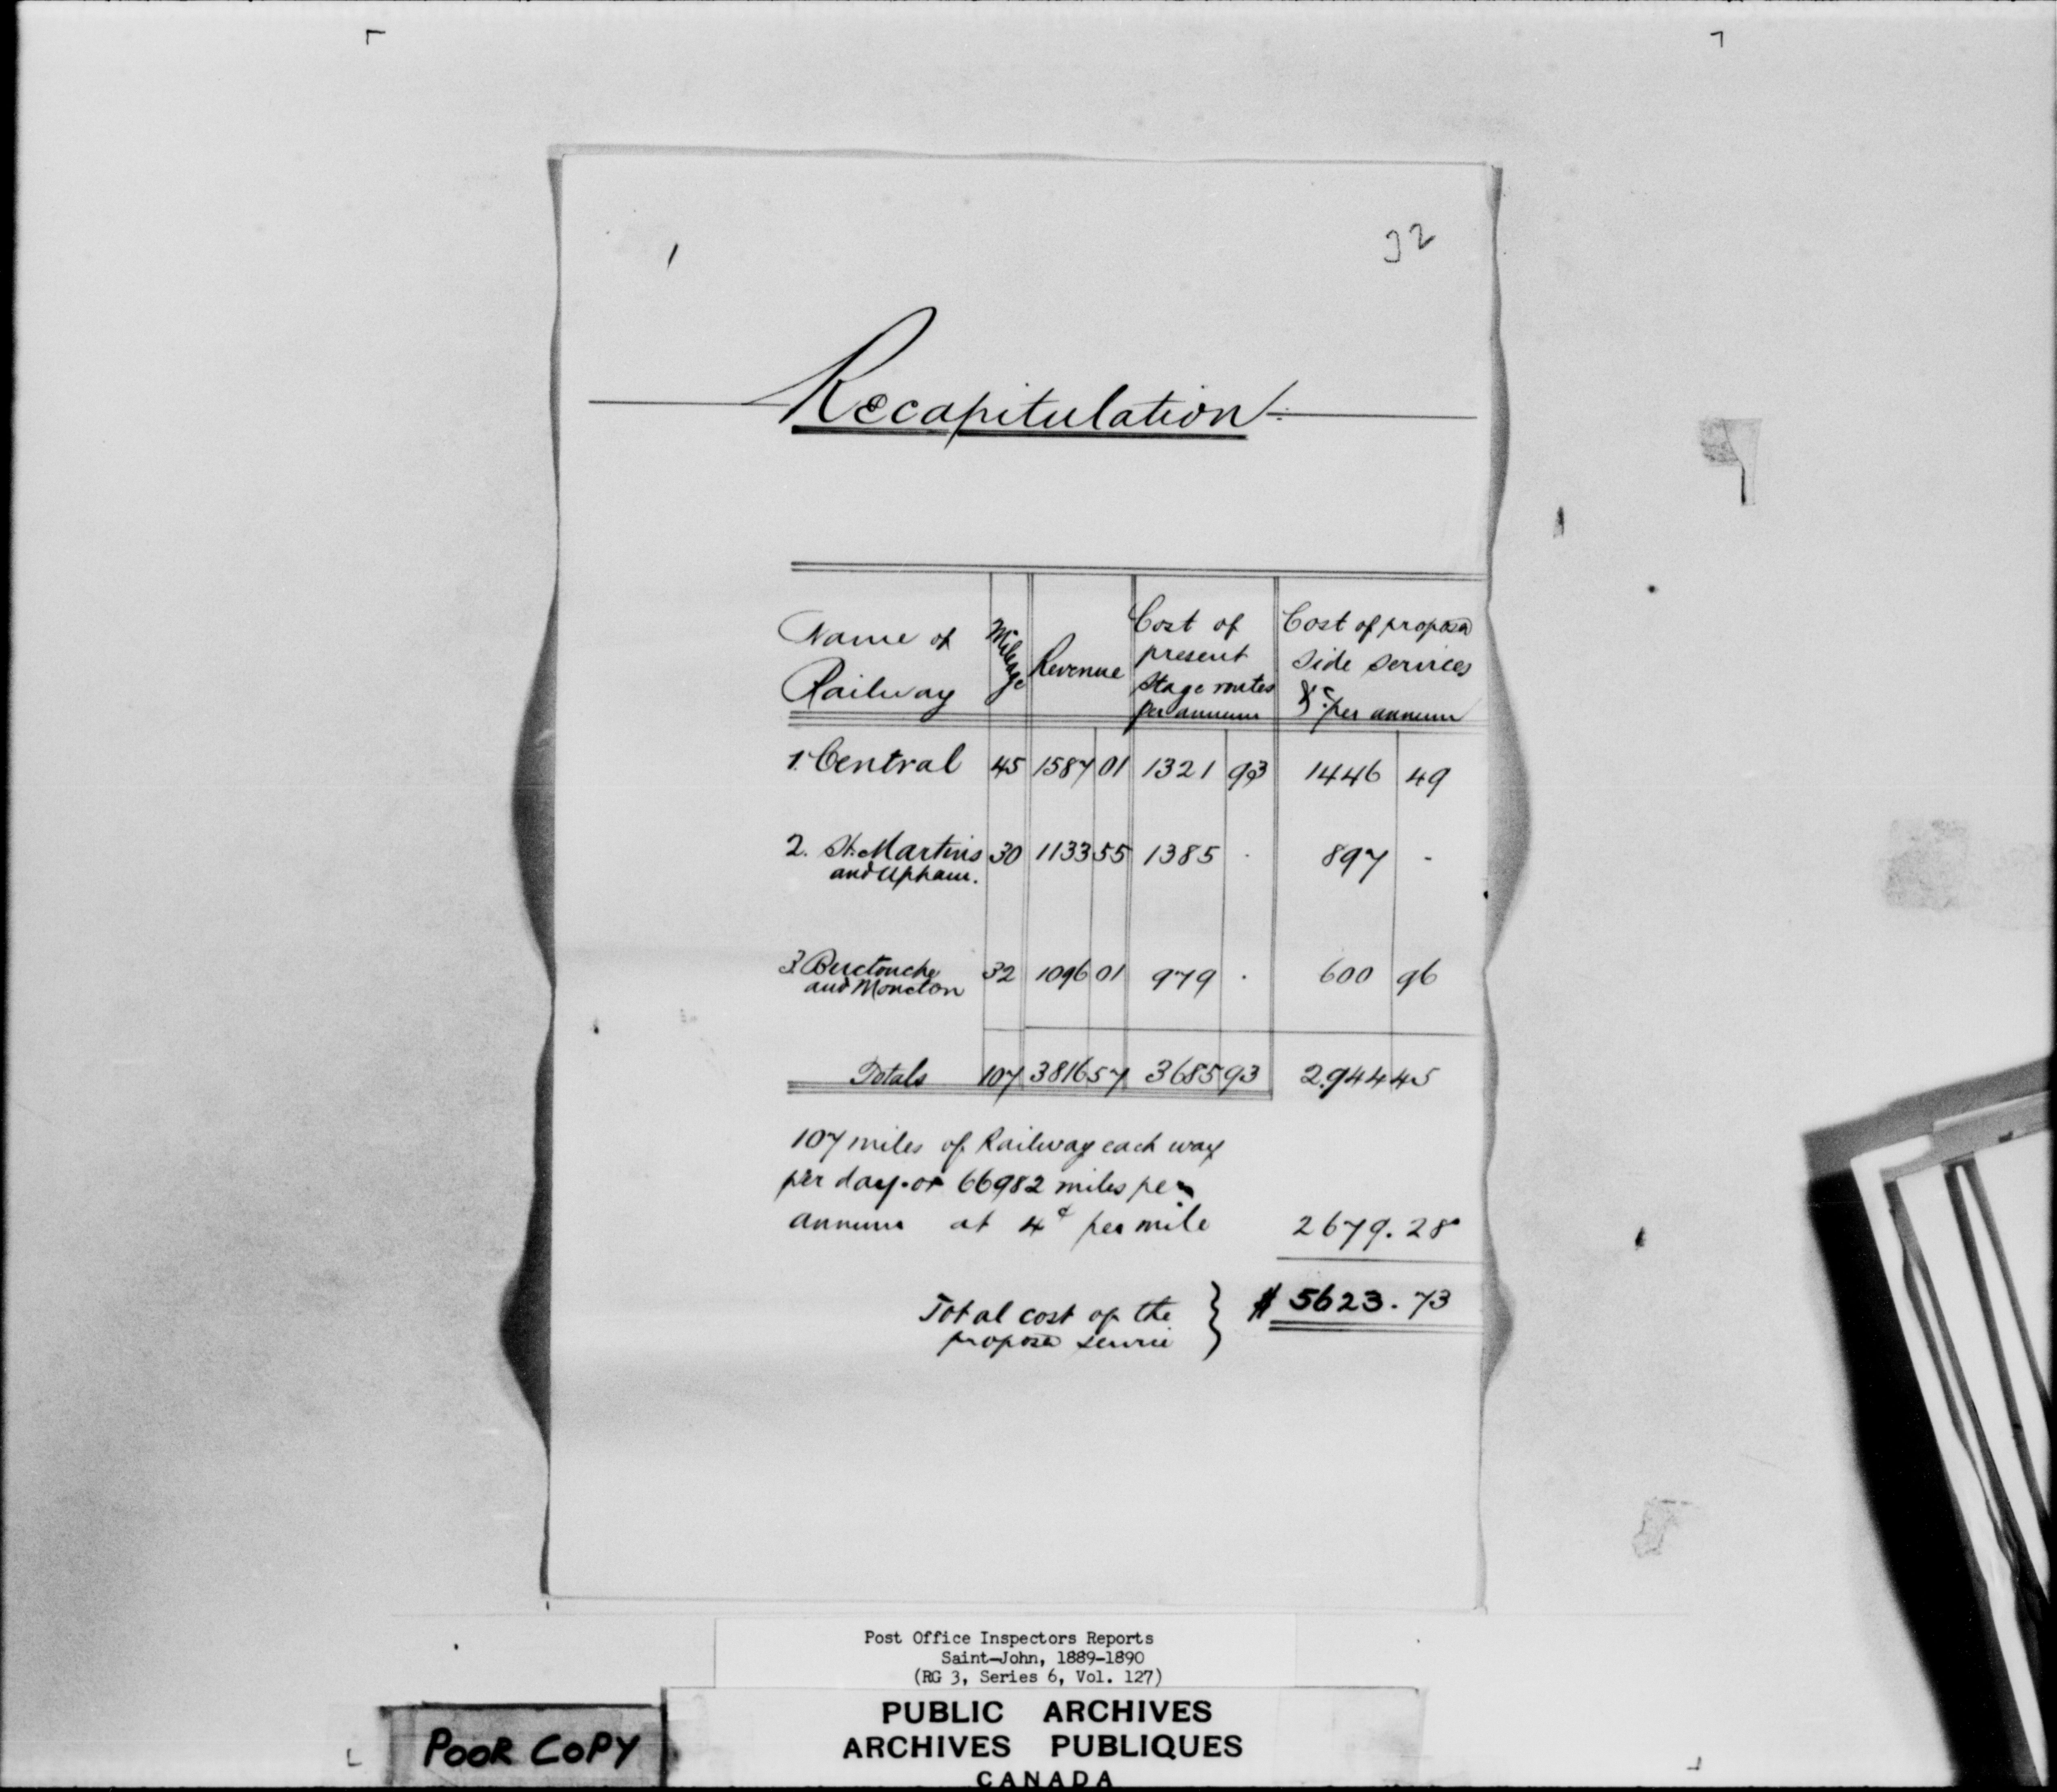 32
Recapitulation
Name of Railway | Mileage | Revenue | Cost of present stage routes per annum | Cost of proposed side services &c. per annum
1. Central 45 1587 01 1321 93 1446 49
2. St. Martins and Upham. 30 1133 55 1385 . 897 -
3. Buctouche and Moncton 32 1096 01 979 . 600 96
Totals 107 3816 57 3685 93 2944 45
107 miles of Railway each way
per day. or 66982 miles per
annum at 4¢ per mile 2679.28
Total cost of the
proposed service } $ 5623.73
Post Office Inspectors Reports
Saint-John, 1889-1890
(RG 3, Series 6, Vol. 127)
POOR COPY
PUBLIC ARCHIVES
ARCHIVES PUBLIQUES
CANADA